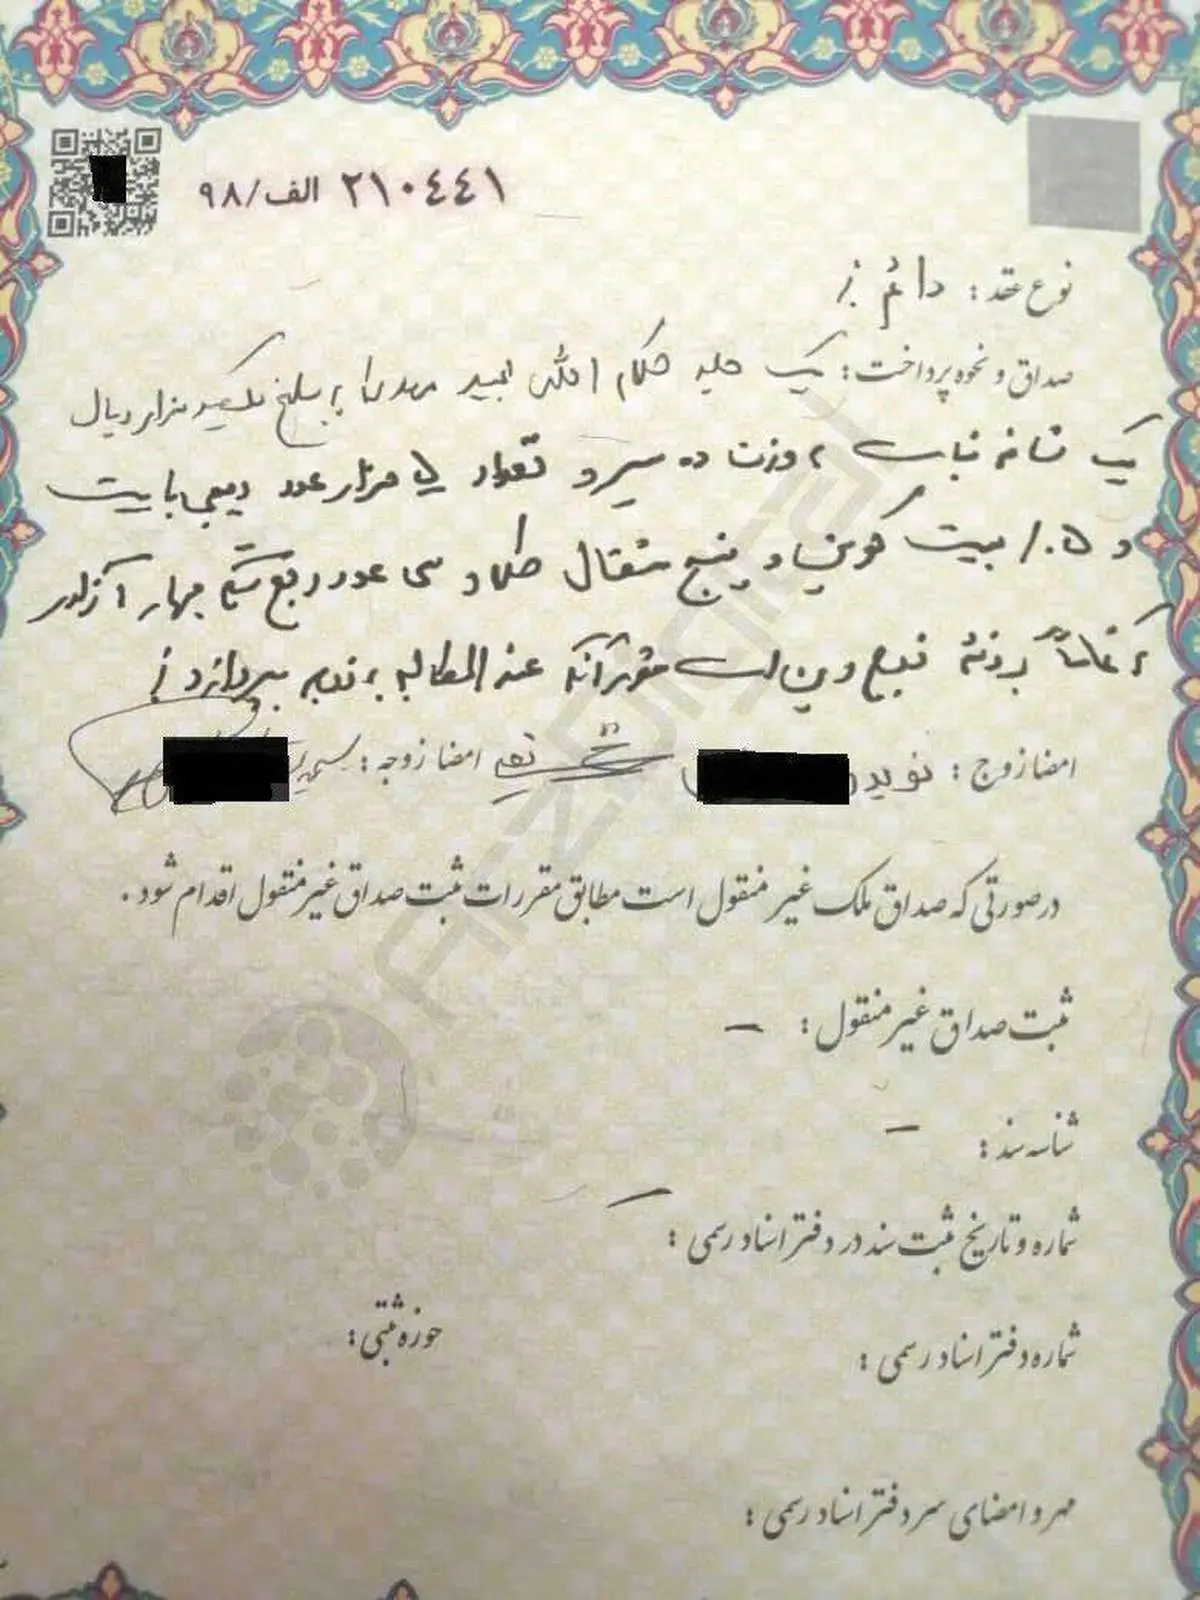 ۲۱۰۴۴۱ الف/۹۸
نوع عقد: دائم
صداق و نحوه پرداخت: یک جلد کلام الله مجید مهدی به مبلغ یکصد هزار ریال
یک شاخه نبات به وزن ده سیر و تعداد هزار عدد دیجی بایت
و ۱۰۵ بیت کوین و پنج مثقال طلا و سی عدد ربع سکه بهار آزادی
که تماماً بر ذمه زوج دین است مقرر آنکه عندالمطالبه به زوجه بپردازد
امضا زوج: نوید امضا زوجه:
در صورتی که صداق ملک غیر منقول است مطابق مقررات ثبت صداق غیر منقول اقدام شود.
ثبت صداق غیر منقول: –
شناسه سند: –
شماره و تاریخ ثبت سند در دفتر اسناد رسمی: –
شماره دفتر اسناد رسمی: حوزه ثبتی:
مهر و امضای سردفتر اسناد رسمی:
AFZDIGITAL